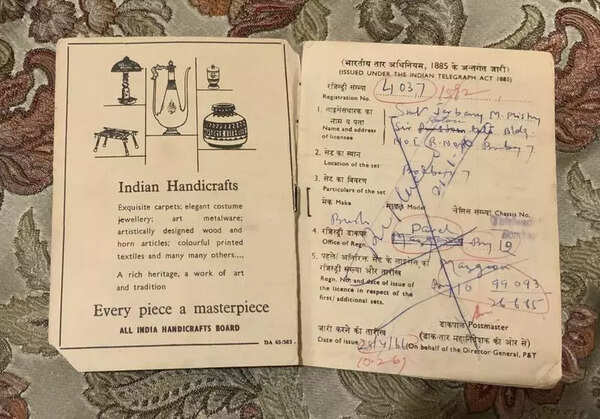 Indian Handicrafts
Exquisite carpets; elegant costume
jewellery; art metalware;
artistically designed wood and
horn articles; colourful printed
textiles and many many others....
A rich heritage, a work of art
and tradition
Every piece a masterpiece
ALL INDIA HANDICRAFTS BOARD
DA 65/585
(भारतीय तार अधिनियम, 1885 के अन्तर्गत जारी)
(ISSUED UNDER THE INDIAN TELEGRAPH ACT 1885)
रजिस्ट्री संख्या
Registration No. 4037
1. लाइसेंसधारक का
नाम व पता
Name and address
of licensee
Bombay 7
2. सेट का स्थान
Location of the set
Bombay 7
3. सेट का विवरण
Particulars of the set
मेक Make माडल Model चेसिस संख्या Chassis No.
Bush
4. रजिस्ट्री डाकघर
Office of Regn.
Parel
5. पहले/अतिरिक्त सेट के लाइसेंस की
रजिस्ट्री संख्या और तारीख
Regn. No. and date of issue of
the licence in respect of the
first/additional sets.
99093
26.6.65
जारी करने की तारीख
Date of issue
डाकपाल Postmaster
(डाक-तार महानिदेशक की ओर से)
(On behalf of the Director General, P&T)